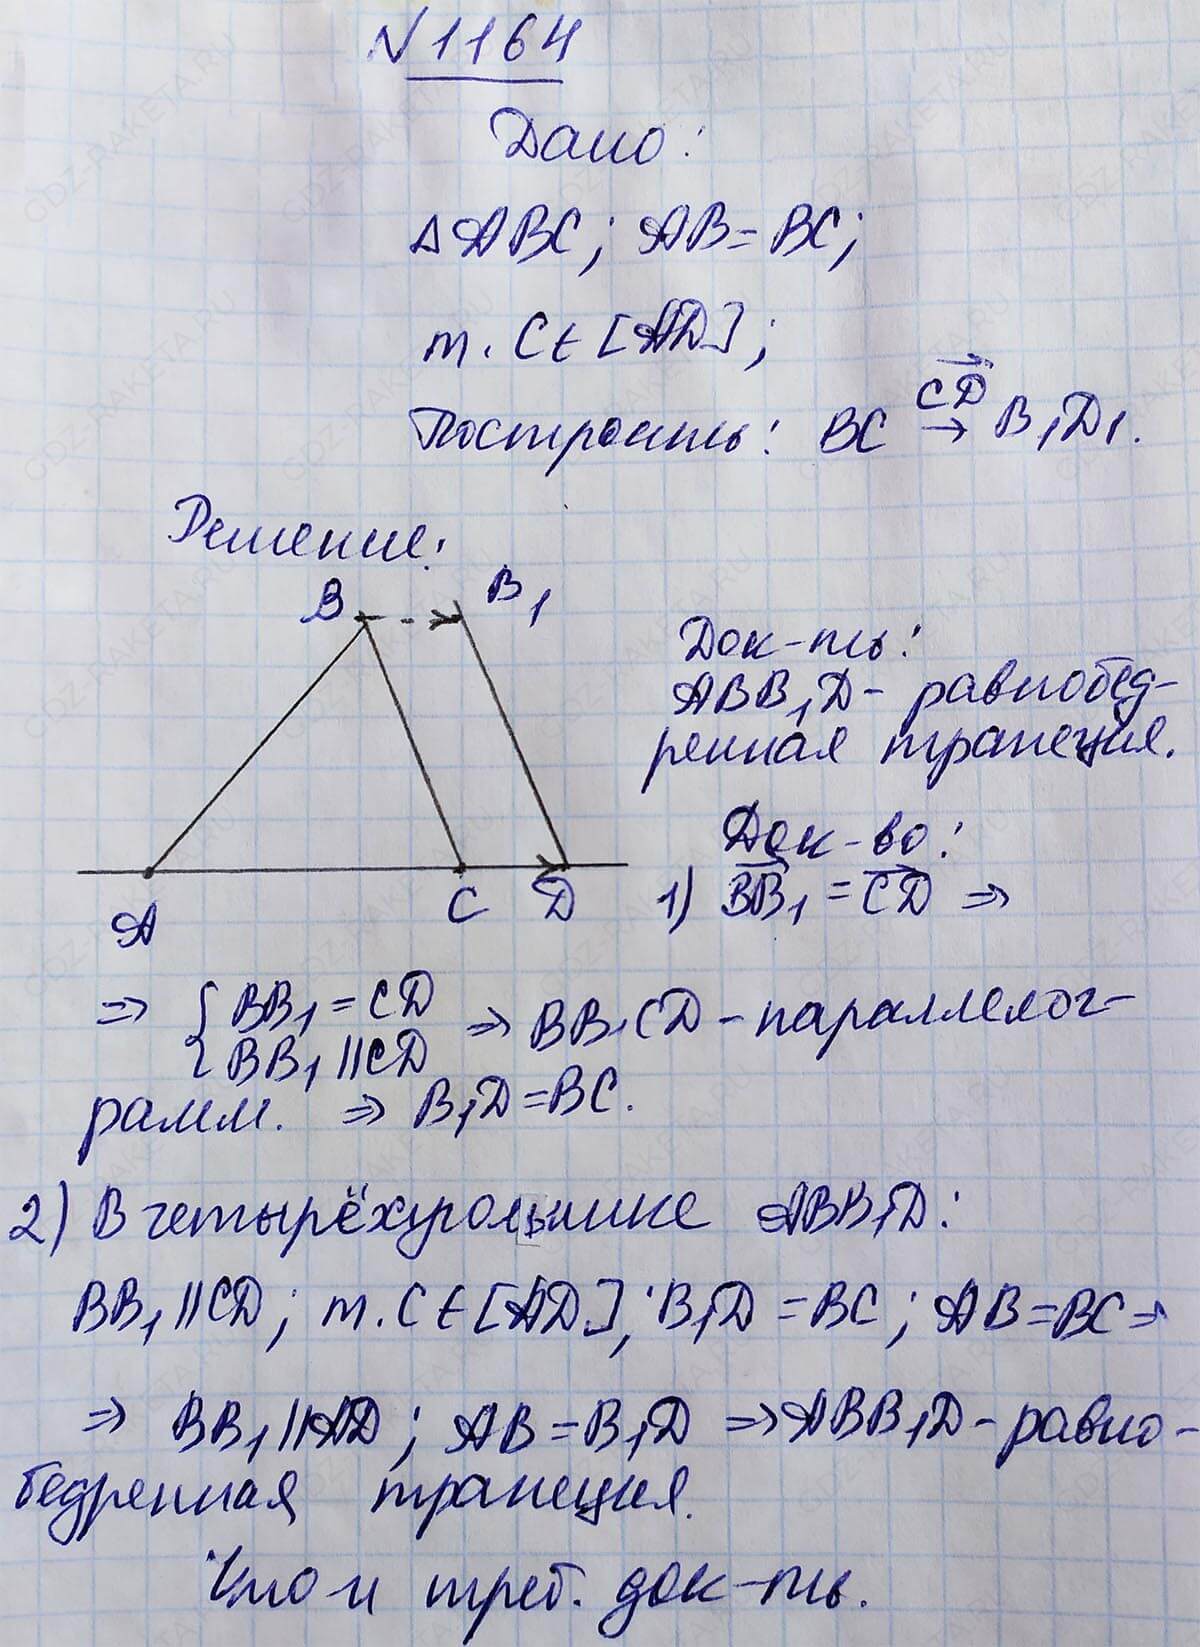 N 1164
Дано:
Δ ABC; AB = BC;
т. C ∈ [AD];
Построить: BC →(CD→) B₁D₁.
Решение:
B B₁
A C D
Док-ть:
ABB₁D - равнобед-
ренная трапеция.
Док-во:
1) BB₁→ = CD→ ⇒
⇒ { BB₁ = CD
{ BB₁ || CD ⇒ BB₁CD - параллелог-
рамм. ⇒ B₁D = BC.
2) В четырёхугольнике ABB₁D:
BB₁ || CD; т. C ∈ [AD]; B₁D = BC; AB = BC ⇒
⇒ BB₁ || AD; AB = B₁D ⇒ ABB₁D - равно-
бедренная трапеция.
Что и треб. док-ть.
GDZ-RAKETA.RU